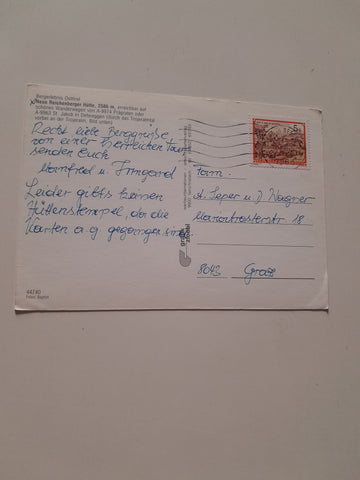 Bergerlebnis Osttirol
Neue Reichenberger Hütte, 2586 m, erreichbar auf
schönen Wanderwegen von A-9974 Prägraten oder
A-9963 St. Jakob in Defereggen (durch das Trojeralmtal
vorbei an der Trojeralm, Bild unten)
Recht liebe Berggrüße
von einer herrlichen Tour
senden Euch
Manfred u. Irmgard
Leider gibt's keinen
Hüttenstempel, da die
Karten a.g. gegangen sind
44740
Foto:
Fam.
u. J. Wagner
Mariatrosterstr. 18
8043 Graz
5